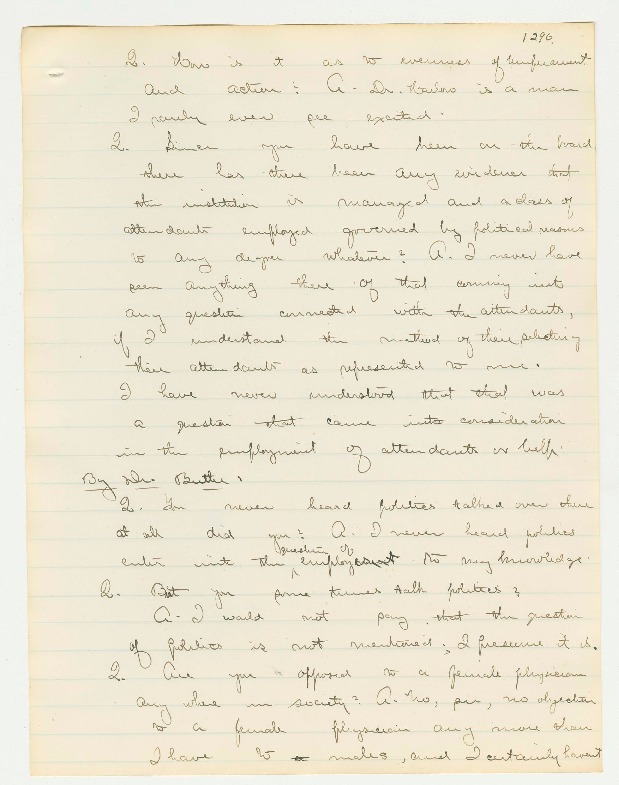 1296.
Q. How is it as to evenness of temperament
and action? A- Dr. Harlow is a man
I rarely ever see excited.
Q. Since you have been on the board
there has there been any evidence that
the institution is managed and a class of
attendants employed governed by political reasons
to any degree whatever? A. I never have
seen anything there of that coming into
any question connected with the attendants,
if I understand the method of their selecting
their attendants as represented to me.
I have never understood that that was
a question that came into consideration
in the employment of attendants or help.
By Dr. Butler.
Q. You never heard politics talked over there
at all did you? A. I never heard politics
enter into the question of employment to my knowledge.
Q. But you some times talk politics?
A- I would not say that the question
of politics is not mentioned; I presume it is.
Q. Are you opposed to a female physician
any where in society? A. No, sir, no objection
to a female physician any more than
I have to a males, and I certainly havent